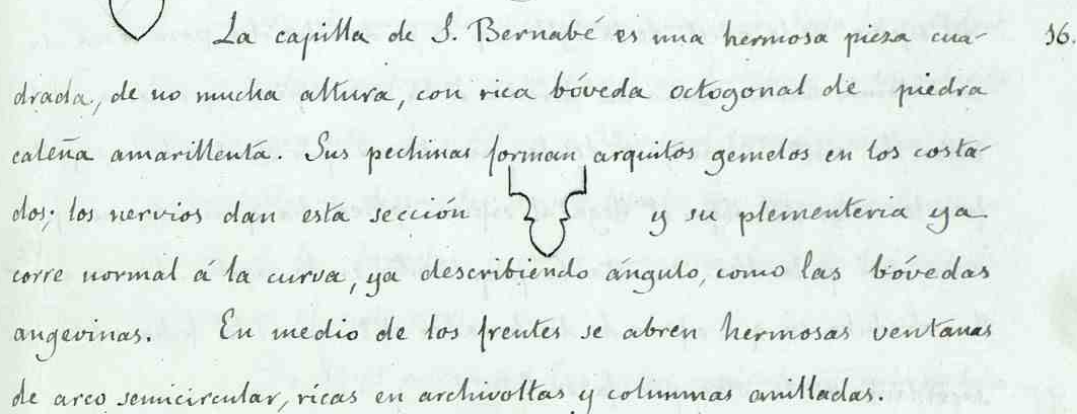 La capilla de S. Bernabé es una hermosa pieza cua- 36.
drada, de no mucha altura, con rica bóveda octogonal de piedra
caleña amarillenta. Sus pechinas forman arquitos gemelos en los costa-
dos; los nervios dan esta sección y su plementeria ya
corre normal á la curva, ya describiendo ángulo, como las bóvedas
angevinas. En medio de los frentes se abren hermosas ventanas
de arco semicircular, ricas en archivoltas y columnas anilladas.